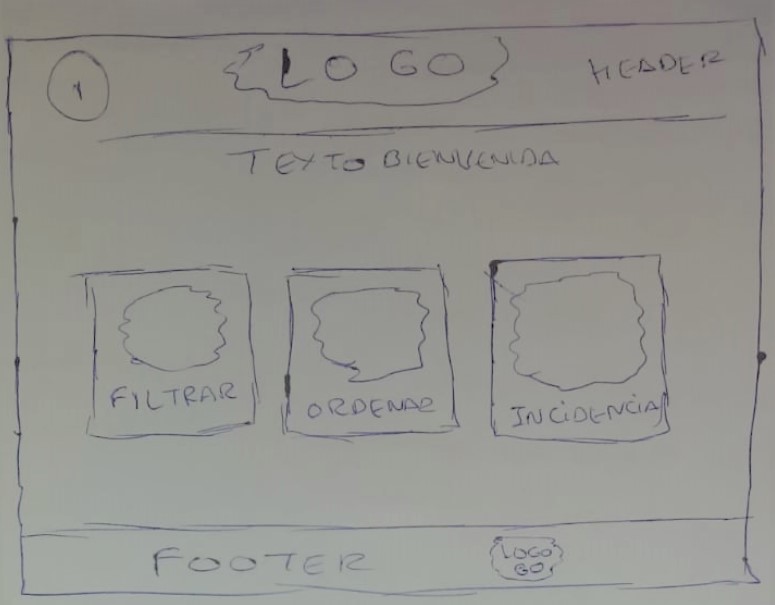 1
LOGO
HEADER
TEXTO BIENVENIDA
FILTRAR
ORDENAR
INCIDENCIA
FOOTER
LOGO
GO